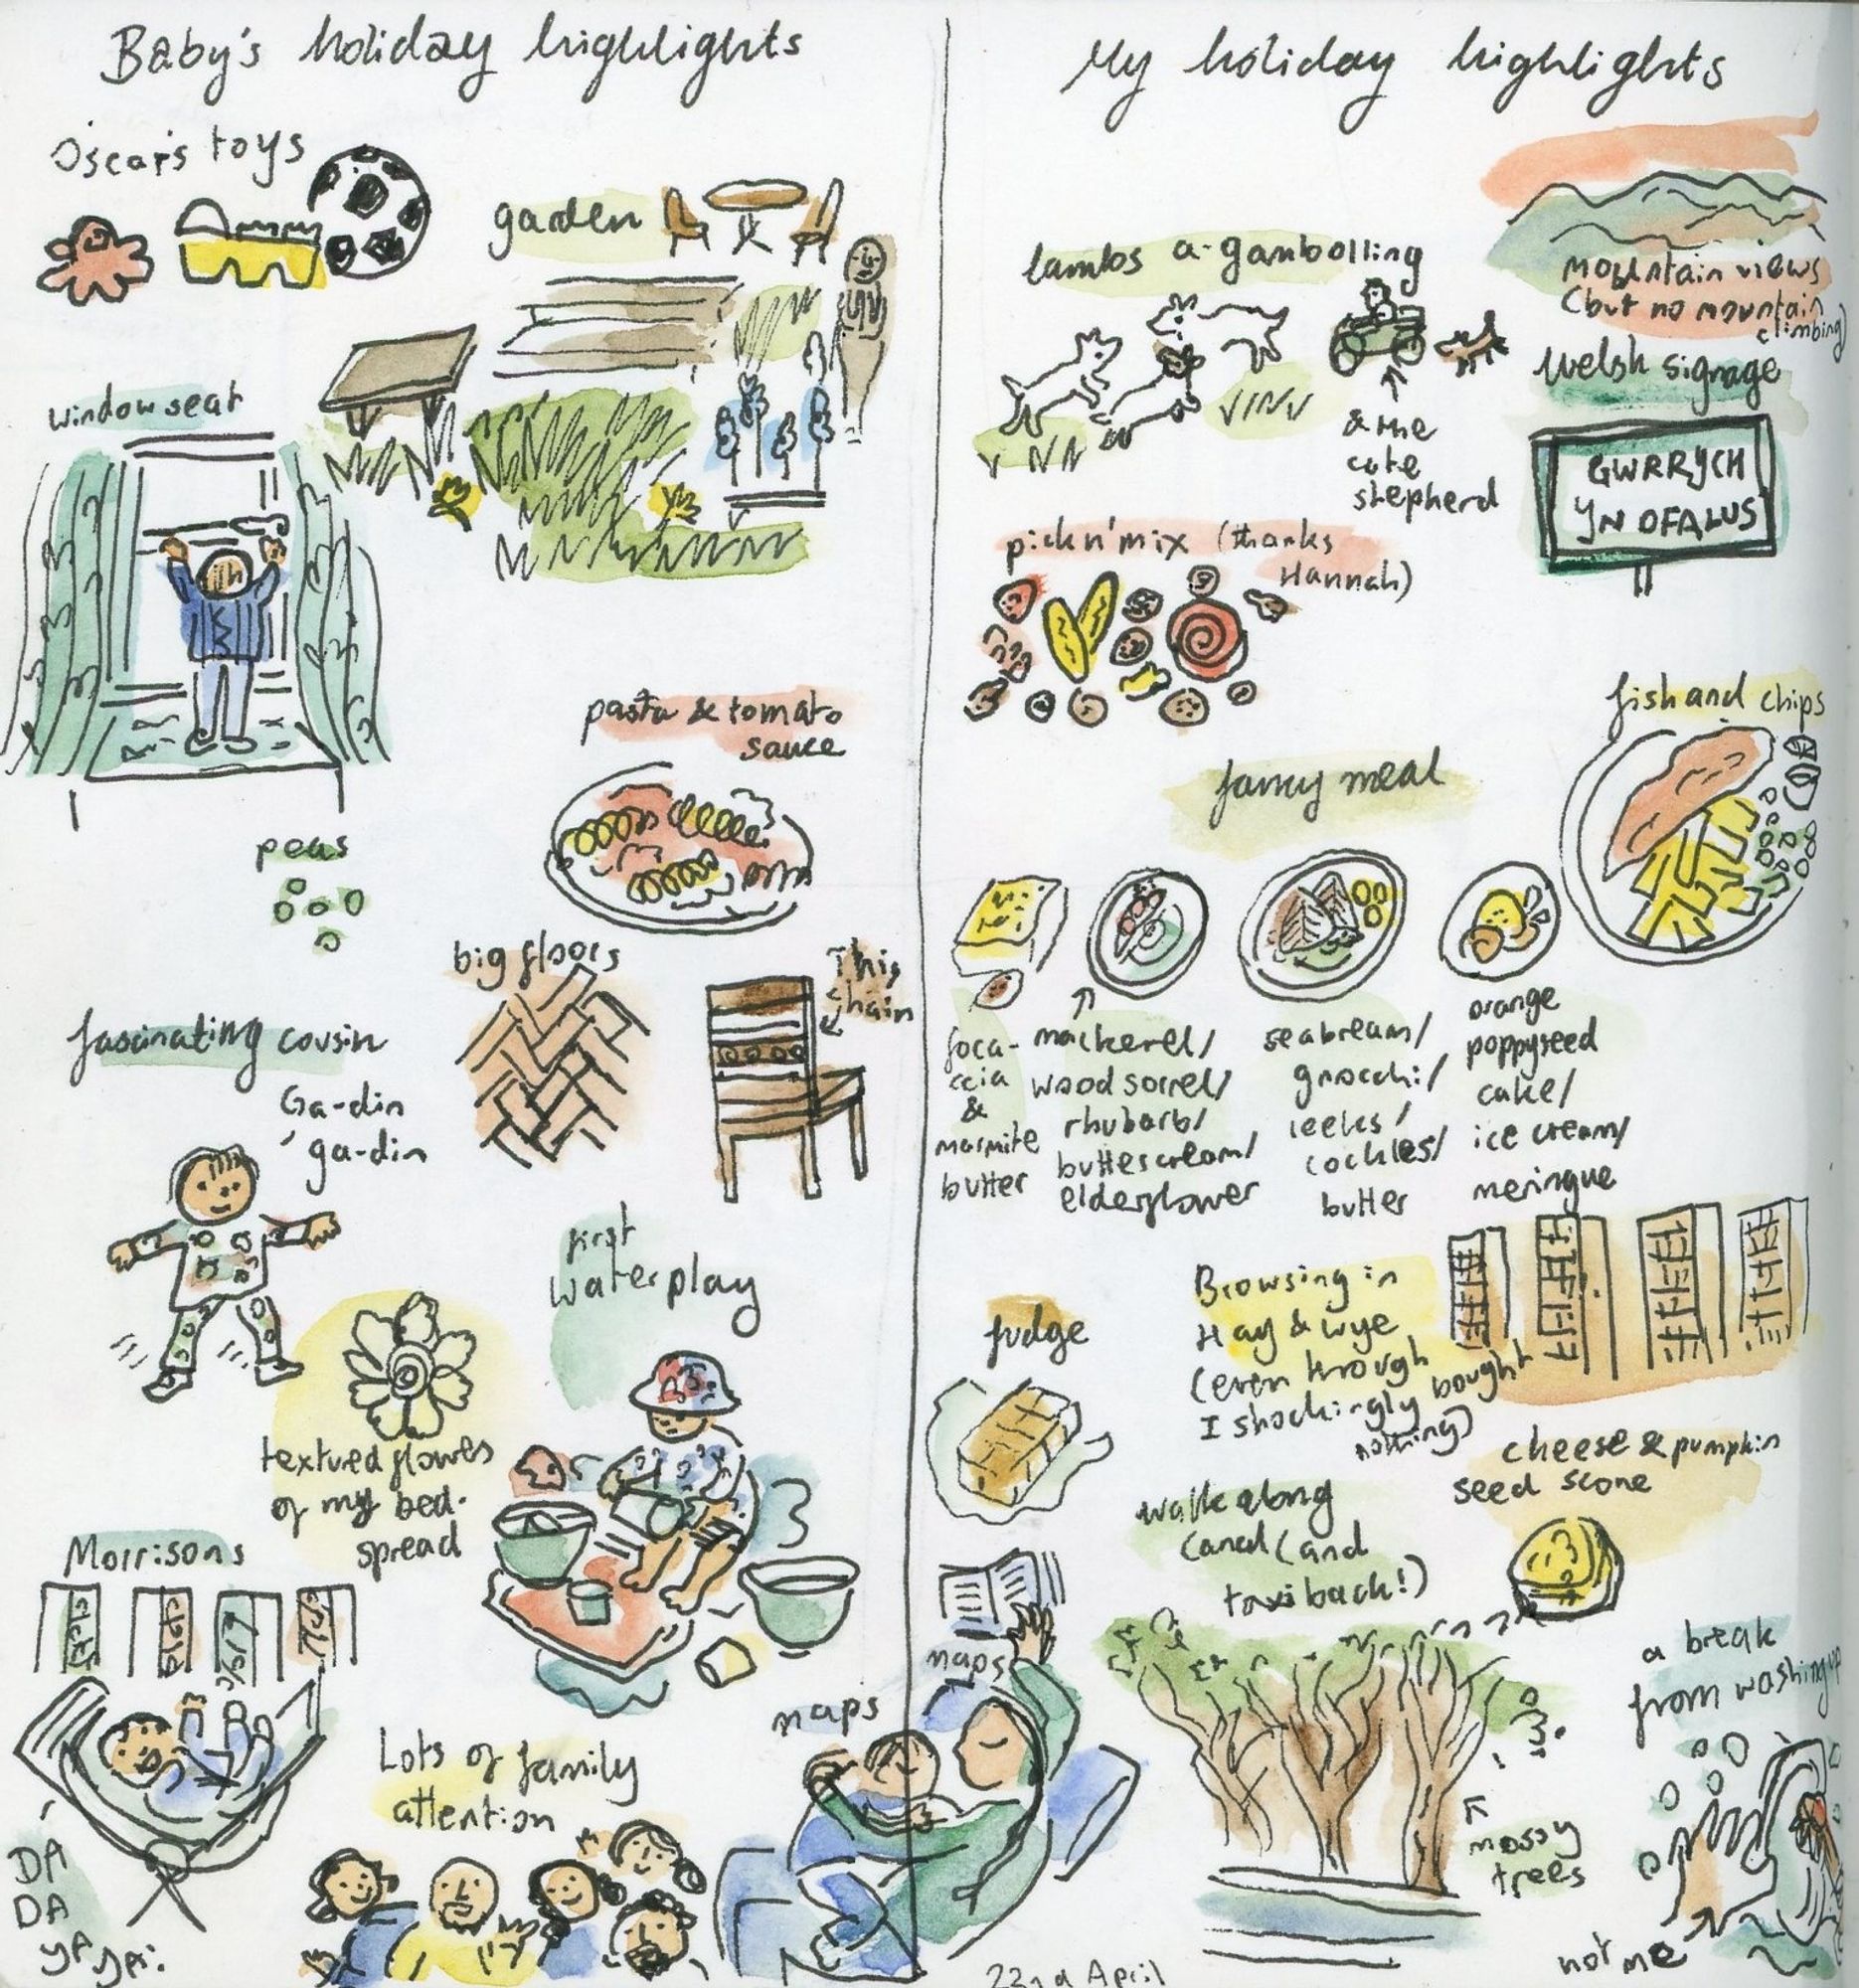 Baby's holiday highlights
Oscar's toys
garden
window seat
pasta & tomato
sauce
peas
big floors
This
chair
fascinating cousin
Ga-din
ga-din
first
water play
textured flowers
of my bed-
spread
Morrisons
DA
DA
YA
Lots of family
attention
naps
My holiday highlights
mountain views
(but no mountain
climbing)
lambs a-gambolling
& the
cute
shepherd
Welsh signage
GWRRYCH
YN OFALUS
pick n' mix (thanks
Hannah)
fish and chips
fancy meal
foca-
ccia
&
marmite
butter
mackerel/
wood sorrel/
rhubarb/
buttercream/
elderflower
seabream/
gnocchi/
leeks/
cockles/
butter
orange
poppyseed
cake/
ice cream/
meringue
fudge
Browsing in
Hay & Wye
(even though
I shockingly bought
nothing)
cheese & pumpkin
seed scone
walk along
canal (and
taxi back!)
mossy
trees
naps
a break
from washing up
not me
22nd April